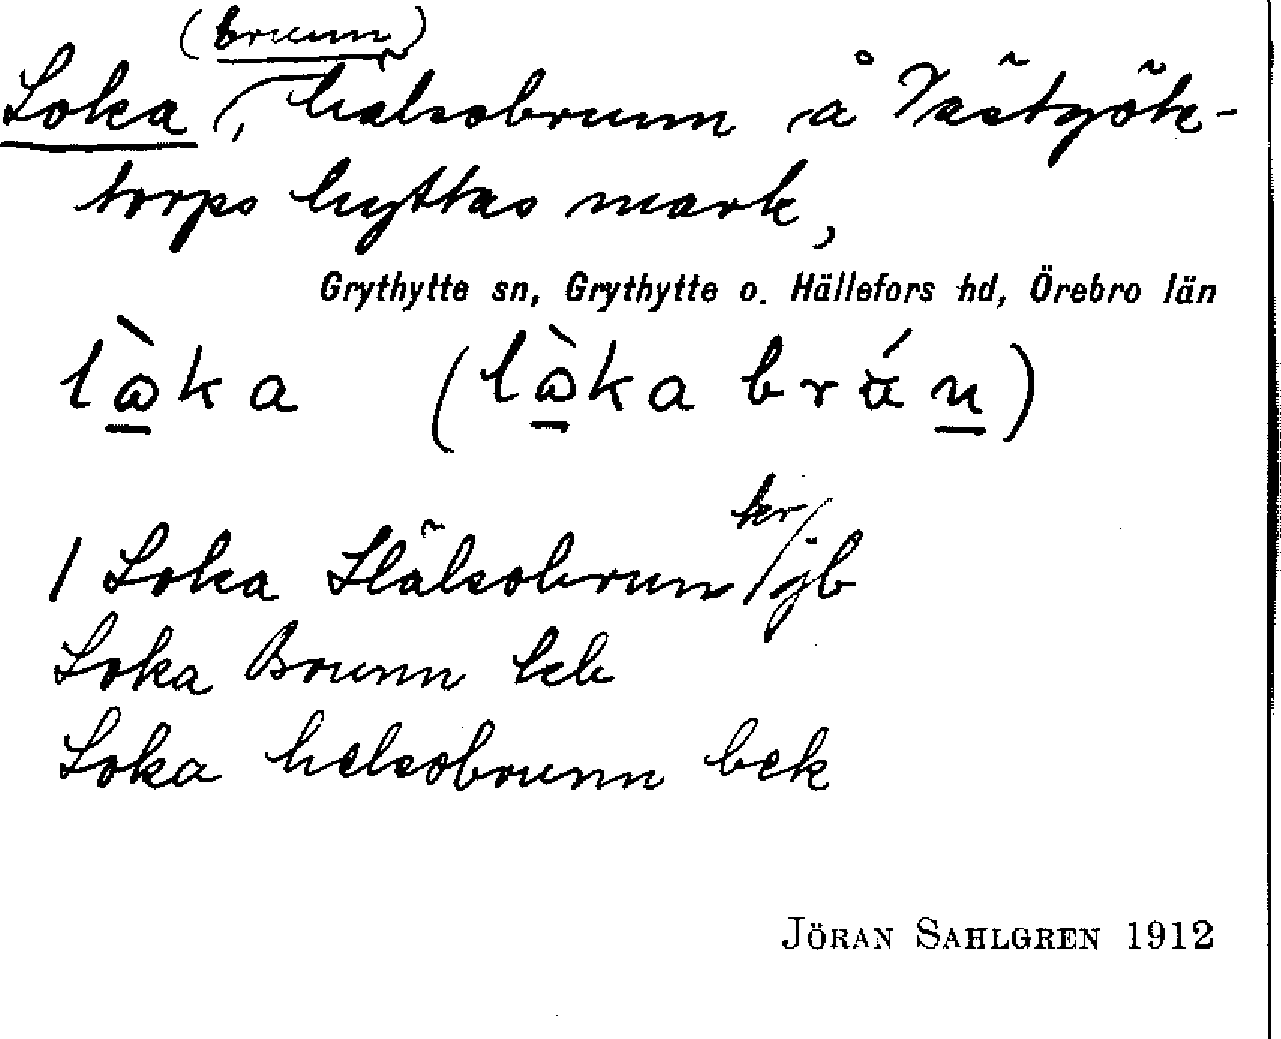 (brunn)
Loka, hälsobrunn å Västgöt-
torps hyttas mark,
Grythytte sn, Grythytte o. Hällefors hd, Örebro län
lὼka (lὼka brá̈n)
1 Loka Hälsobrun kr/jb
Loka Brunn
Loka helsobrunn bek
JÖRAN SAHLGREN 1912